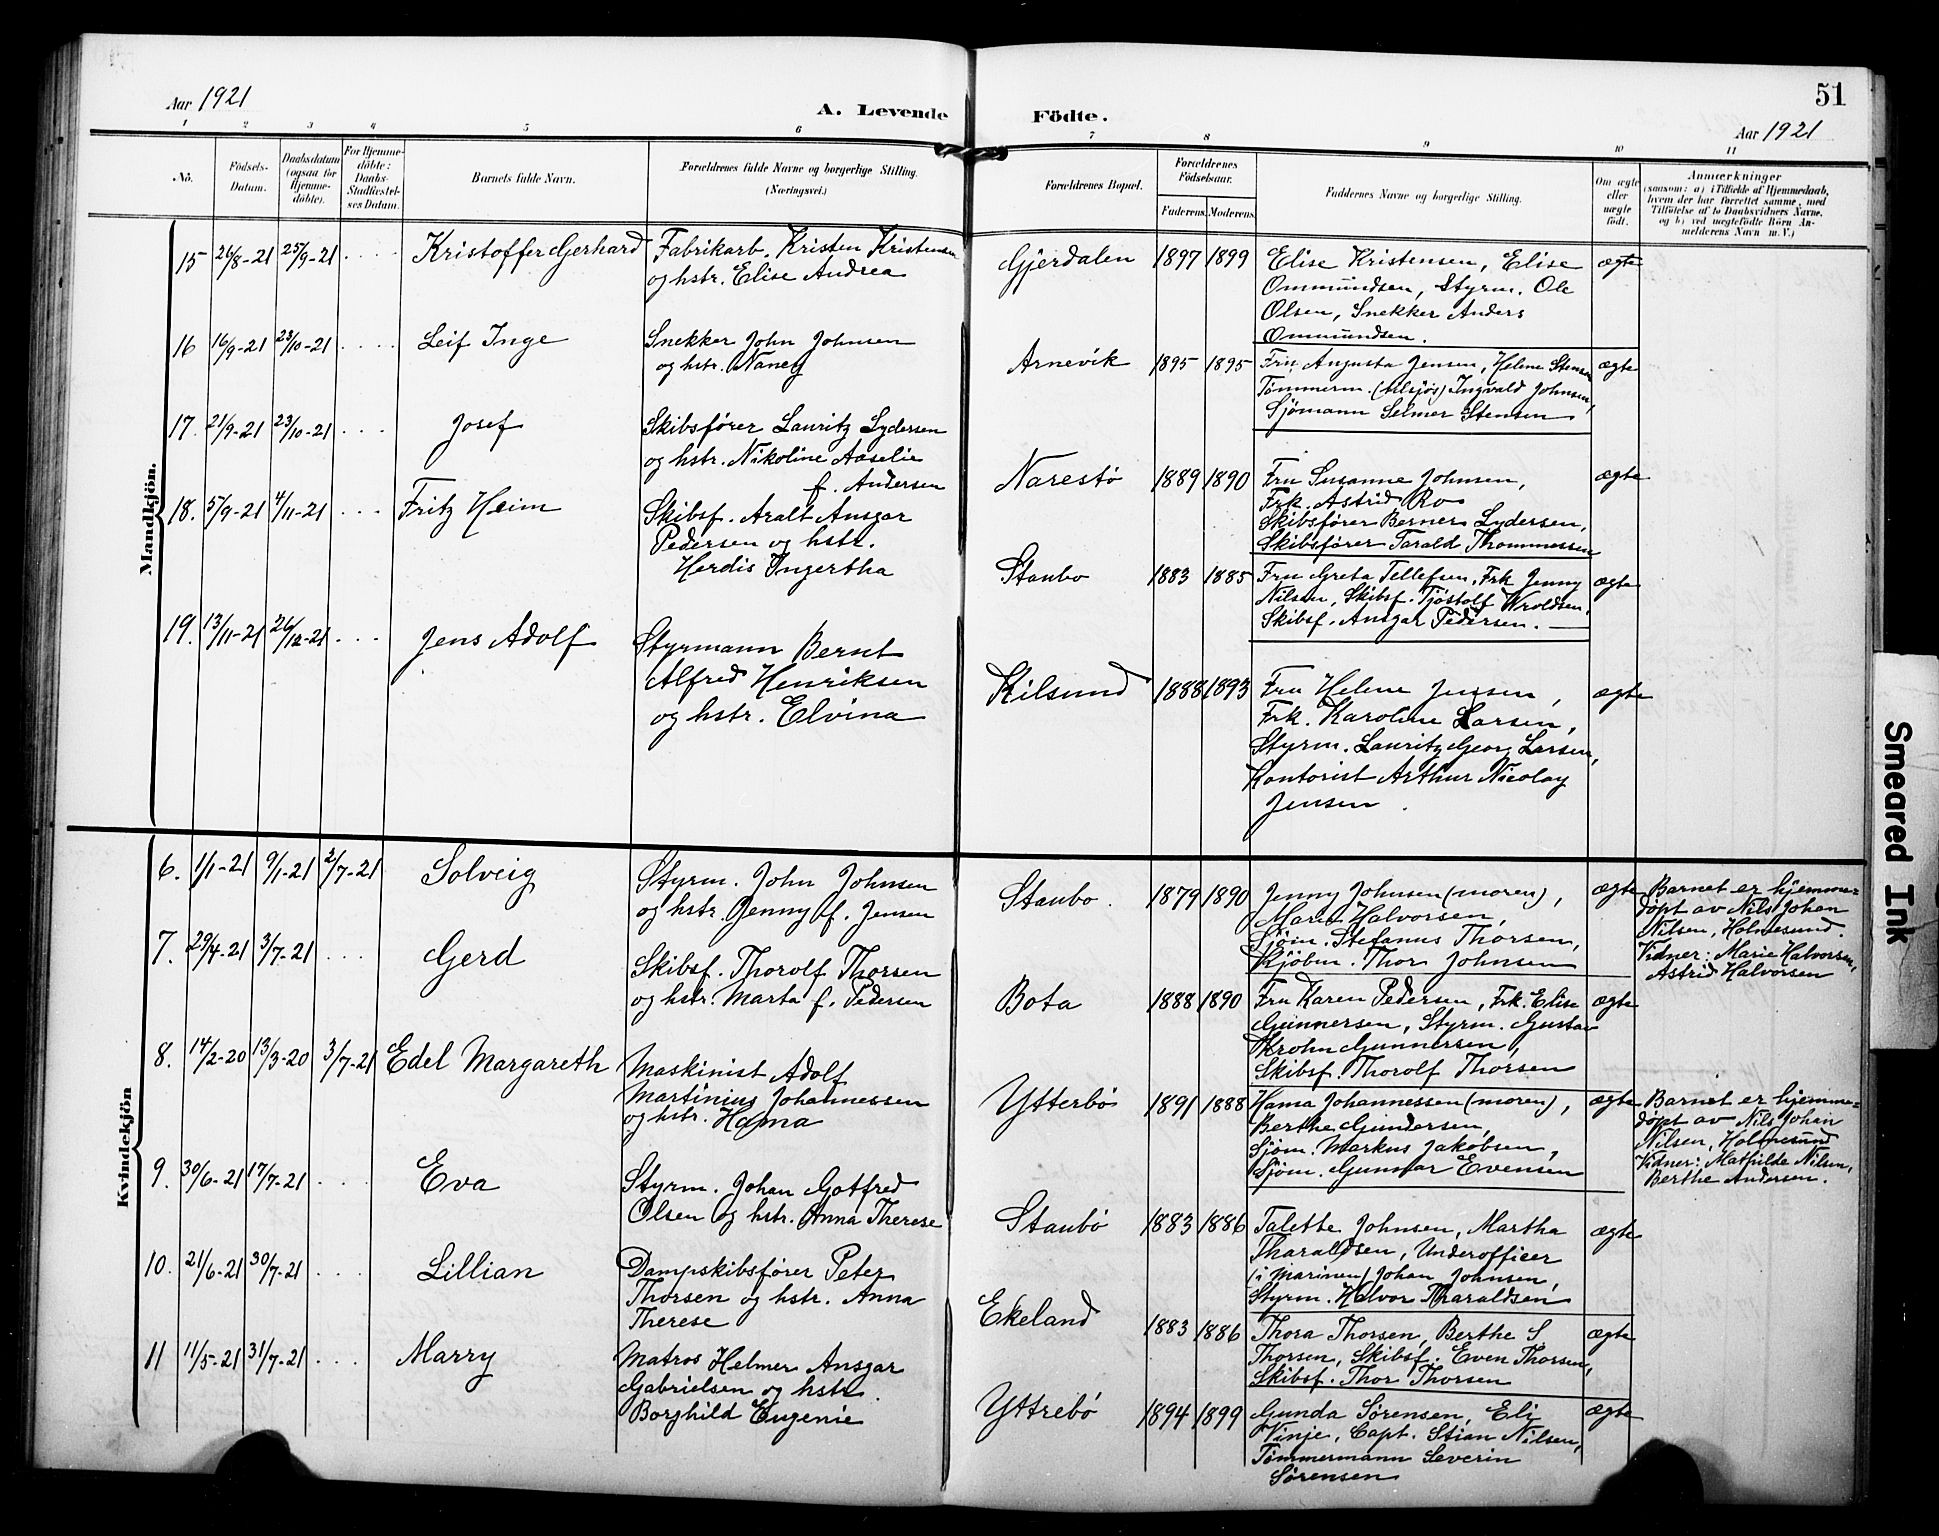 51
Aar 1921
A. Levende Födte.
Aar 1921
1 2 3 4 5 6 7 8 9 10 11
No.
Födsels-
Datum.
Daabsdatum
(ogsaa for
Hjemme-
döbte).
For Hjemme-
döbte:
Daabs-
Stadfæstel-
ses Datum.
Barnets fulde Navn.
Forældrenes fulde Navne og borgerlige Stilling.
(Næringsvei.)
Forældrenes Bopæl.
Forældrenes
Födselsaar.
Faderens. Moderens.
Faddernes Navne og borgerlige Stilling.
Om ægte
eller
uægte
födt.
Anmærkninger
(saasom: a) i Tilfælde af Hjemmedaab,
hvem der har forrettet samme, med
Tilföielse af to Daabsvidners Navne,
og b) ved uægtefödte Börn An-
melderens Navn m. V.)
Mandkjön.
15 26/8-21 25/9-21 . . . . Kristoffer Gerhard
Fabrikarb. Kristen Kristensen
og hstr. Elise Andrea
Gjerdalen 1897 1899
Elise Kristensen, Elise
Ommundsen, Styrm. Ole
Olsen, Snekker Anders
Ommundsen.
ægte
16 16/9-21 23/10-21 . . . . Leif Inge
Snekker John Johnsen
og hstr. Nancy
Arnevik 1895 1895
Fru Augusta Jensen, Helene Stensen
Tömmerm. Ingvald Johnsen,
Sjömann Selmer Stensen
ægte
17. 21/9-21 23/10-21 . . . Josef
Skibsfører Lauritz Lydersen
og hstr. Nikoline Aaselie
f. Andersen
Narestø 1889 1890
Fru Susanne Johnsen,
Frk. Astrid Ro
Skibsfører Berner Lydersen,
Skibsfører Tarald Thommessen
ægte
18. 5/9-21 4/11-21 . . . Fritz Heim
Skibsf. Aralt Ansgar
Pedersen og hstr.
Herdis Ingertha
Staubo 1883 1885
Fru Greta Tellefsen, Frk Jenny
Nilsen, Skibsf. Tjöstolf Wroldsen,
Skibsf. Ansgar Pedersen.
ægte
19. 13/11-21 26/12-21 . . . Jens Adolf
Styrmann Bernt
Alfred Henriksen
og hstr. Elvina
Kilsund 1888 1893
Fru Helene Jensen,
Frk. Karoline Larsen,
Styrm. Lauritz Georg Larsen,
Kontorist Arthur Nicolay
Jensen.
ægte
Kvindekjön
6. 1/1-21 9/1-21 2/7-21 Solveig
Styrm. John Johnsen
og hstr. Jenny f. Jensen
Staubo. 1879 1890
Jenny Johnsen (moren),
Marie Halvorsen,
Sjøm. Stefanus Thorsen,
Kjøbm. Thor Johnsen
ægte
Barnet er hjemme-
døpt av Nils Johan
Nilsen, Holmesund.
Vidner: Marie Halvorsen,
Astrid Halvorsen
7. 29/4-21 3/7-21 . . . Gerd
Skibsf. Thorolf Thorsen
og hstr. Marta f. Pedersen
Bota 1888 1890
Fru Karen Pedersen, Frk. Elise
Gunnersen, Styrm. Gustav
Krohn Gunnersen,
Skibsf. Thorolf Thorsen
ægte
8. 14/2-20 13/3-20 3/7-21 Edel Margareth
Maskinist Adolf
Martinius Johannessen
og hstr. Hanna
Ytterbø 1891 1888
Hanna Johannessen (moren),
Berthe Gundersen,
Sjøm. Markus Jakobsen,
Sjøm. Gunnar Evensen
ægte
Barnet er hjemme-
døpt av Nils Johan
Nilsen, Holmesund
Vidner: Mathilde Nilsen,
Berthe Andersen.
9. 30/6-21 17/7-21 . . . Eva
Styrm. Johan Gotfred
Olsen og hstr. Anna Therese
Staubø 1883 1886
Talette Johnsen, Martha
Tharaldsen, Underofficer
(i marinen) Johan Johnsen,
Styrm. Halvor Tharaldsen
ægte
10. 21/6-21 30/7-21 . . . Lillian
Dampskibsfører Peter
Thorsen og hstr. Anna
Therese
Ekeland 1883 1886
Thora Thorsen, Berthe S
Thorsen, Skibsf. Even Thorsen,
Skibsf. Thor Thorsen
ægte
11 11/5-21 31/7-21 . . . Marry
Matros Helmer Ansgar
Gabrielsen og hstr.
Borghild Eugenie
Yttrebø 1894 1899
Gunda Sørensen, Eli
Vinje, Capt. Stian Nilsen,
Tømmermann Severin
Sørensen
ægte
Smeared Ink